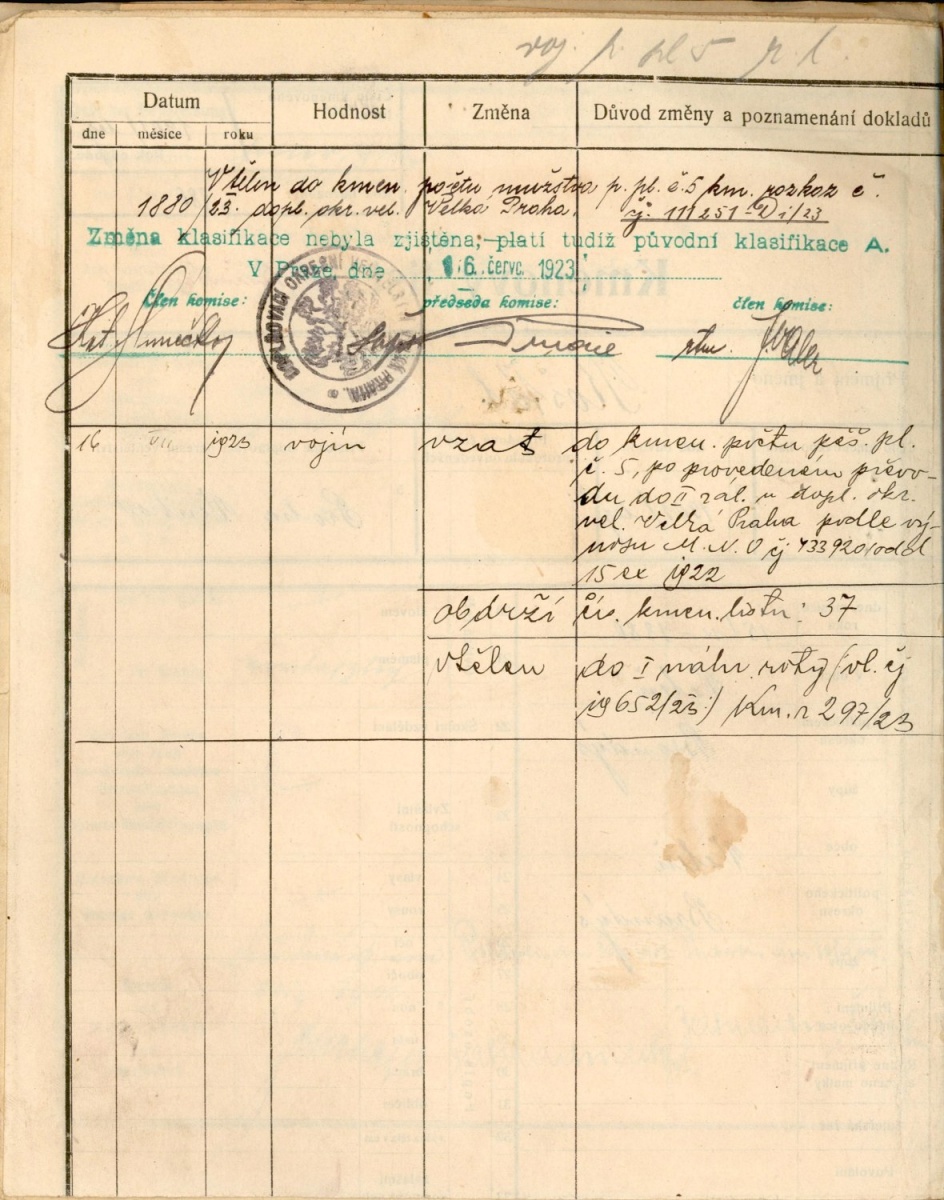 voj. p. pl 5 p. l.
Datum Hodnost Změna Důvod změny a poznamenání dokladů
dne měsíce roku
Vtělen do kmen. počtu mužstva p. pl. č. 5 km. rozkaz č.
1880/23. dopl. okr. vel. Velká Praha. čj. 111251-Di/23
Změna klasifikace nebyla zjištěna,-platí tudíž původní klasifikace A.
V Praze, dne 16. červc. 1923
Člen komise: předseda komise: člen komise:
DOPLŇOVACÍ OKRESNÍ VELITELSTVÍ VELKÁ PRAHA
16 VII 1923 vojín vzat do kmen. počtu pěš. pl.
č. 5, po provedeném převo-
du do II zál. u dopl. okr.
vel. Velká Praha podle vý-
nosu M.N.O čj 433920 od
15 1922
obdrží čís. kmen. listu: 37
vtělen do I náhr. roty (vl. čj
19652/23:) Km. r 297/23